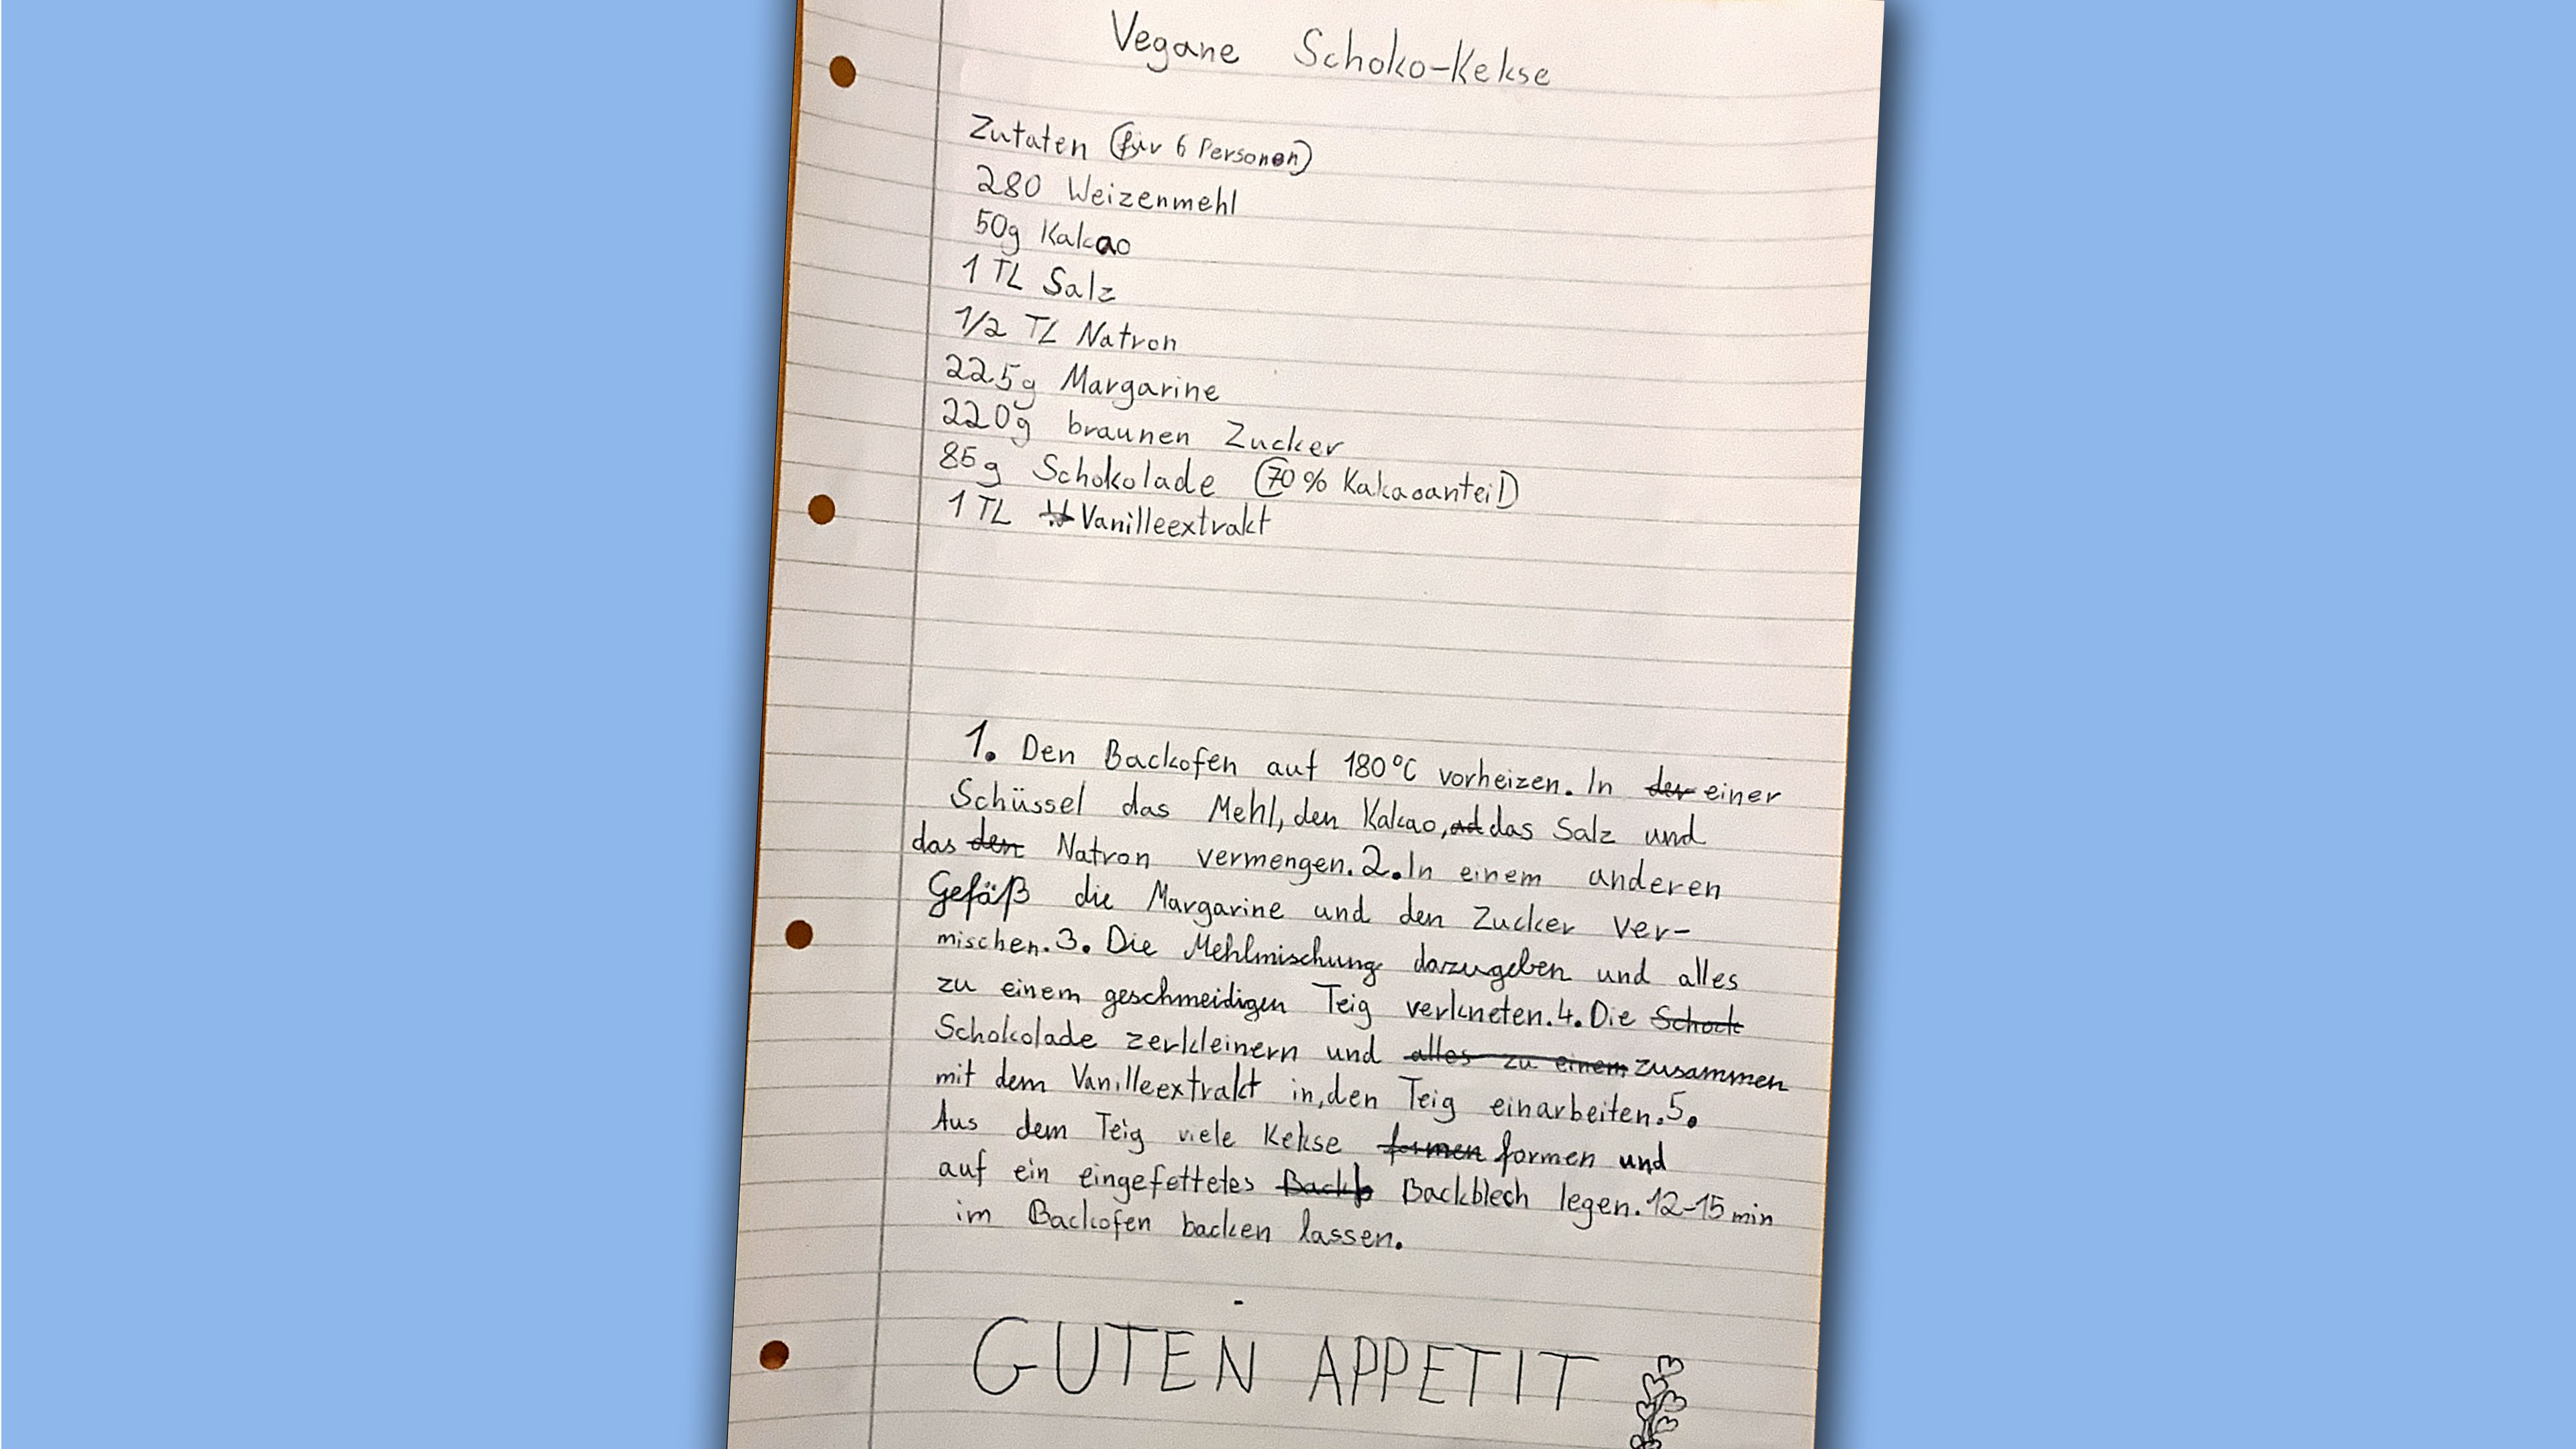 Vegane Schoko-Kekse
Zutaten (für 6 Personen)
280 Weizenmehl
50g Kakao
1 TL Salz
1/2 TL Natron
225g Margarine
220g braunen Zucker
85g Schokolade (70% Kakaoanteil)
1 TL Vanilleextrakt
1. Den Backofen auf 180°C vorheizen. In der einer
Schüssel das Mehl, den Kakao, ad das Salz und
das den Natron vermengen. 2. In einem anderen
Gefäß die Margarine und den Zucker ver-
mischen. 3. Die Mehlmischung dazugeben und alles
zu einem geschmeidigen Teig verkneten. 4. Die Schock
Schokolade zerkleinern und alles zu einem zusammen
mit dem Vanilleextrakt in, den Teig einarbeiten. 5.
Aus dem Teig viele Kekse formen formen und
auf ein eingefettetes Backb Backblech legen. 12-15 min
im Backofen backen lassen.
GUTEN APPETIT